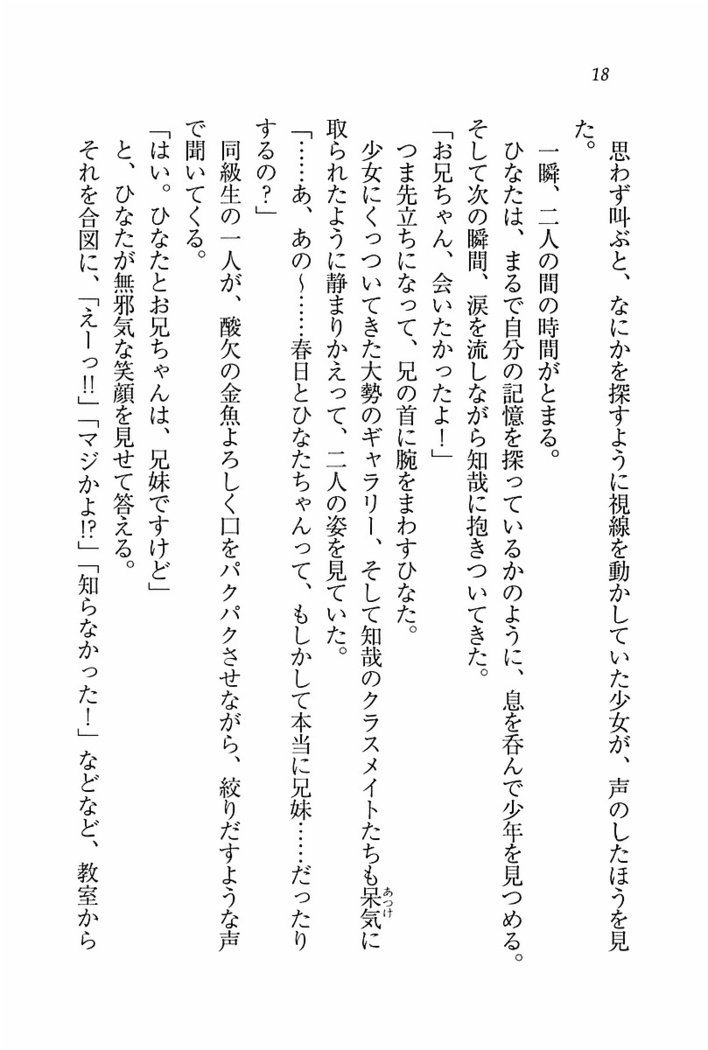 18
思わず叫ぶと、なにかを探すように視線を動かしていた少女が、声のしたほうを見
た。
一瞬、二人の間の時間がとまる。
ひなたは、まるで自分の記憶を探っているかのように、息を呑んで少年を見つめる。
そして次の瞬間、涙を流しながら知哉に抱きついてきた。
「お兄ちゃん、会いたかったよ！」
つま先立ちになって、兄の首に腕をまわすひなた。
少女にくっついてきた大勢のギャラリー、そして知哉のクラスメイトたちも呆気に
あつけ
取られたように静まりかえって、二人の姿を見ていた。
「……あ、あの～……春日とひなたちゃんって、もしかして本当に兄妹……だったり
するの？」
同級生の一人が、酸欠の金魚よろしく口をパクパクさせながら、絞りだすような声
で聞いてくる。
「はい。ひなたとお兄ちゃんは、兄妹ですけど」
と、ひなたが無邪気な笑顔を見せて答える。
それを合図に、「えーっ!!」「マジかよ!?」「知らなかった！」などなど、教室から